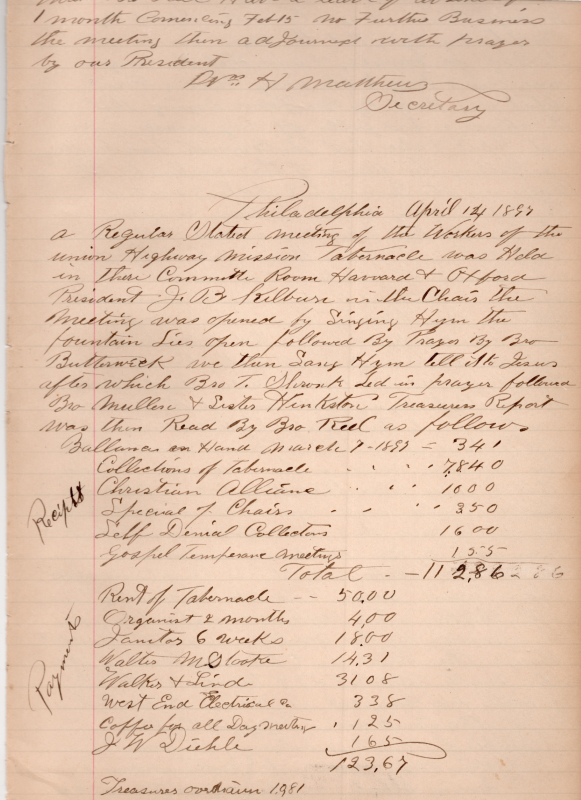 1 month Comencing Feb 15 no Further Business
the meeting then adjourned with prayer
by our President
Wm H Matthews
Secretary
Philadelphia April 12 1897
a Regular Stated meeting of the Workers of the
union Highway Mission Tabernacle was Held
in there Committe Room Harvard & Oxford
President J. B. Kilburn in the Chair the
Meeting was opened by Singing Hym the
Fountain Lies open followed By Prayer By Bro
Butterwick we then Sang Hym tell it to Jesus
after which Bro T. Shronk Led in prayer followed
Bro Mullen & Sister Hinkston Treasurers Report
was then Read By Bro. Keel as follows
Ballance on Hand March 7-1897 = 341
Collections of Tabernacle 7840
Receipts
Christian Alliance 1000
Special of Chairs 350
Self Denial Collectors 1600
Gospel Temperance meetings 155
Total - 112,86 286
Rent of Tabernacle -- 50,00
Organist 2 months 4,00
Janitor 6 weeks 18.00
Payments
Walter 14,31
Walker & Lind 3108
West End Electrical Co 338
Coffee for all Day meeting 125
J W Diehle 165
123,67
Treasures overdrawn 1981